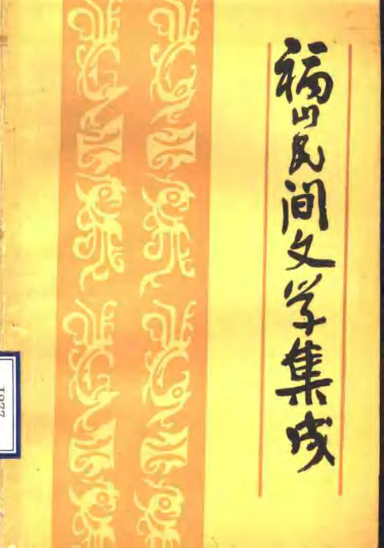 福山民间文学集成
1977